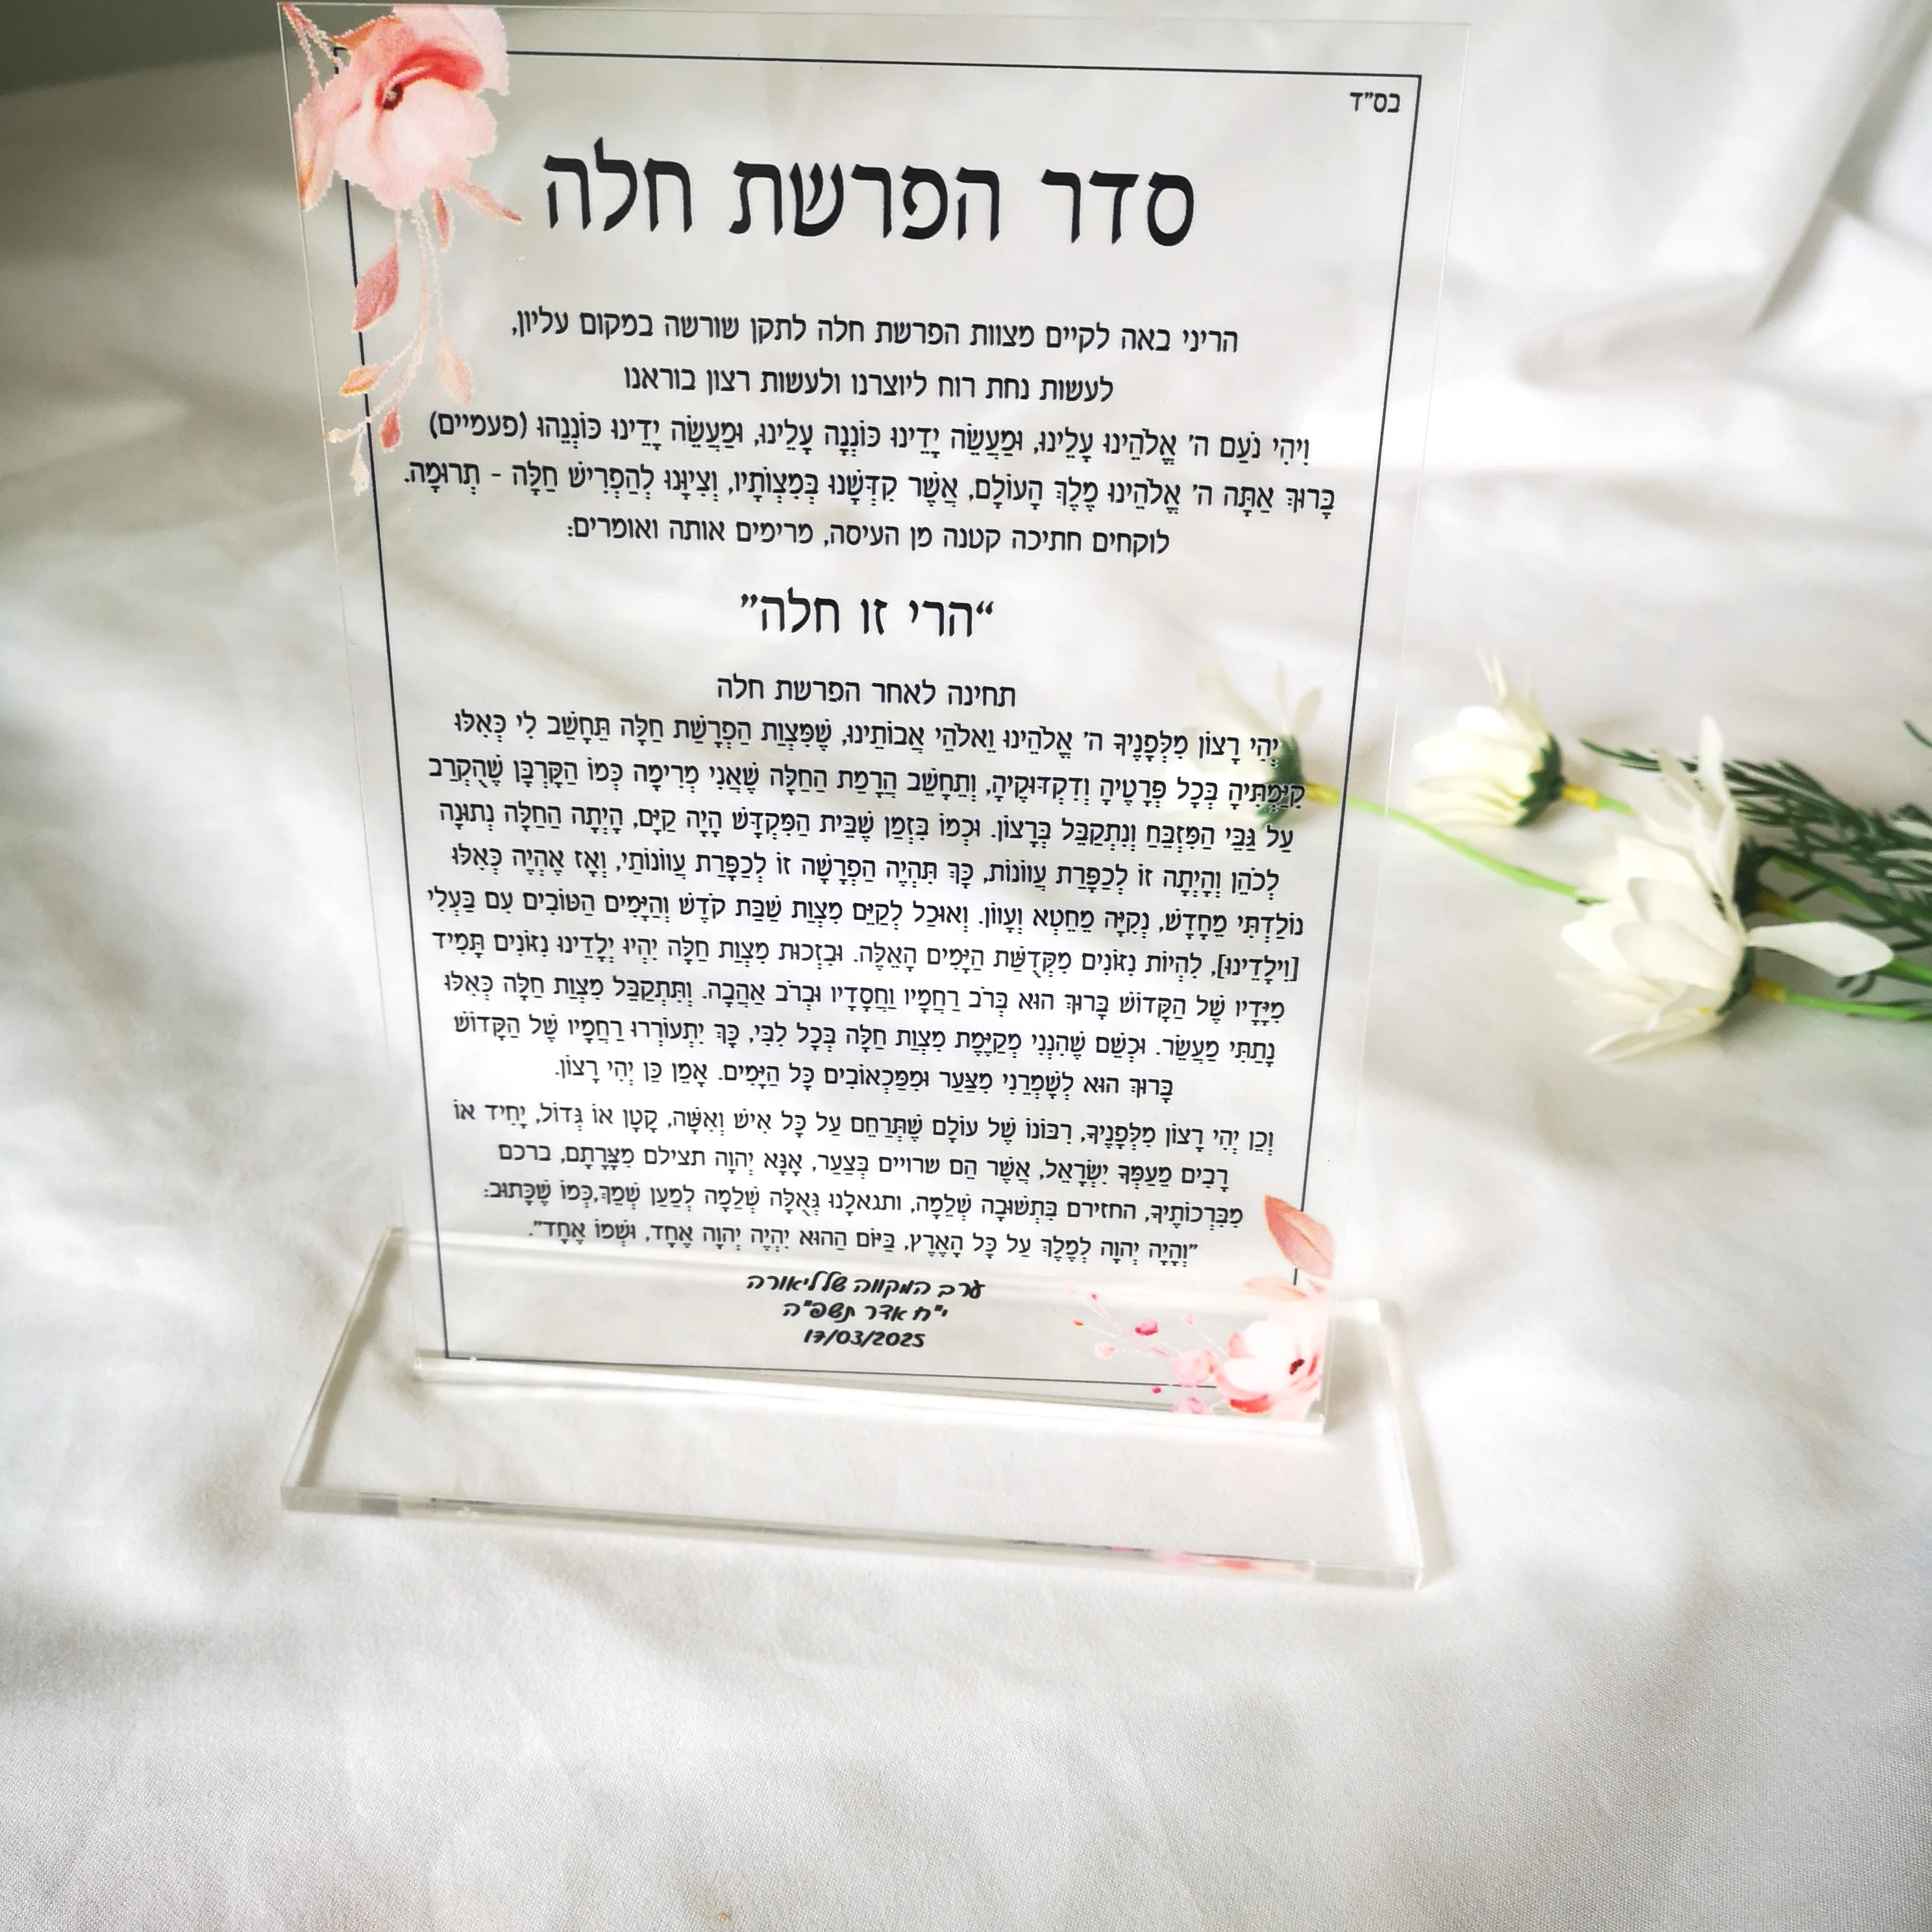 בס"ד
סדר הפרשת חלה
הריני באה לקיים מצוות הפרשת חלה לתקן שורשה במקום עליון,
לעשות נחת רוח ליוצרנו ולעשות רצון בוראנו
וִיהִי נֹעַם ה' אֱלֹהֵינוּ עָלֵינוּ, וּמַעֲשֵׂה יָדֵינוּ כּוֹנְנָה עָלֵינוּ, וּמַעֲשֵׂה יָדֵינוּ כּוֹנְנֵהוּ (פעמיים)
בָּרוּךְ אַתָּה ה' אֱלֹהֵינוּ מֶלֶךְ הָעוֹלָם, אֲשֶׁר קִדְּשָׁנוּ בְּמִצְוֹתָיו, וְצִיוָּנוּ לְהַפְרִישׁ חַלָּה - תְרוּמָה.
לוקחים חתיכה קטנה מן העיסה, מרימים אותה ואומרים:
“הרי זו חלה”
תחינה לאחר הפרשת חלה
יְהִי רָצוֹן מִלְּפָנֶיךָ ה' אֱלֹהֵינוּ וֵאלֹהֵי אֲבוֹתֵינוּ, שֶׁמִּצְוַת הַפְרָשַׁת חַלָּה תֵּחָשֵׁב לִי כְּאִלּוּ
קִיַּמְתִּיהָ בְּכָל פְּרָטֶיהָ וְדִקְדּוּקֶיהָ, וְתֵחָשֵׁב הֲרָמַת הַחַלָּה שֶׁאֲנִי מְרִימָה כְּמוֹ הַקָּרְבָּן שֶׁהֻקְרַב
עַל גַּבֵּי הַמִּזְבֵּחַ וְנִתְקַבֵּל בְּרָצוֹן. וּכְמוֹ בִּזְמַן שֶׁבֵּית הַמִּקְדָּשׁ הָיָה קַיָּם, הָיְתָה הַחַלָּה נְתוּנָה
לְכֹהֵן וְהָיְתָה זוֹ לְכַפָּרַת עֲווֹנוֹת, כָּךְ תִּהְיֶה הַפְרָשָׁה זוֹ לְכַפָּרַת עֲווֹנוֹתַי, וְאָז אֶהְיֶה כְּאִלּוּ
נוֹלַדְתִּי מֵחָדָשׁ, נְקִיָּה מֵחֵטְא וְעָווֹן. וְאוּכַל לְקַיֵּם מִצְוַת שַׁבַּת קֹדֶשׁ וְהַיָּמִים הַטּוֹבִים עִם בַּעְלִי
[וִילָדֵינוּ], לִהְיוֹת נִזּוֹנִים מִקְּדֻשַּׁת הַיָּמִים הָאֵלֶּה. וּבִזְכוּת מִצְוַת חַלָּה יִהְיוּ יְלָדֵינוּ נִזּוֹנִים תָּמִיד
מִיָּדָיו שֶׁל הַקָּדוֹשׁ בָּרוּךְ הוּא בְּרֹב רַחֲמָיו וַחֲסָדָיו וּבְרֹב אַהֲבָה. וְתִתְקַבֵּל מִצְוַת חַלָּה כְּאִלּוּ
נָתַתִּי מַעֲשֵׂר. וּכְשֵׁם שֶׁהִנְנִי מְקַיֶּמֶת מִצְוַת חַלָּה בְּכָל לִבִּי, כָּךְ יִתְעוֹרְרוּ רַחֲמָיו שֶׁל הַקָּדוֹשׁ
בָּרוּךְ הוּא לְשָׁמְרֵנִי מִצַּעַר וּמִמַּכְאוֹבִים כָּל הַיָּמִים. אָמֵן כֵּן יְהִי רָצוֹן.
וְכֵן יְהִי רָצוֹן מִלְּפָנֶיךָ, רִבּוֹנוֹ שֶׁל עוֹלָם שֶׁתְּרַחֵם עַל כָּל אִישׁ וְאִשָּׁה, קָטָן אוֹ גָּדוֹל, יָחִיד אוֹ
רָבִים מֵעַמְּךָ יִשְׂרָאֵל, אֲשֶׁר הֵם שרויים בְּצַעַר, אָנָּא יְהוָה תצילם מִצָּרָתָם, ברכם
מִבִּרְכוֹתֶיךָ, החזירם בִּתְשׁוּבָה שְׁלֵמָה, ותגאלָנוּ גְּאֻלָּה שְׁלֵמָה לְמַעַן שְׁמֶךָ,כְּמוֹ שֶׁכָּתוּב:
"וְהָיָה יְהוָה לְמֶלֶךְ עַל כָּל הָאָרֶץ, בַּיּוֹם הַהוּא יִהְיֶה יְהוָה אֶחָד, וּשְׁמוֹ אֶחָד".
ערב המקווה של ליאורה
י"ח אדר תשפ"ה
17/03/2025